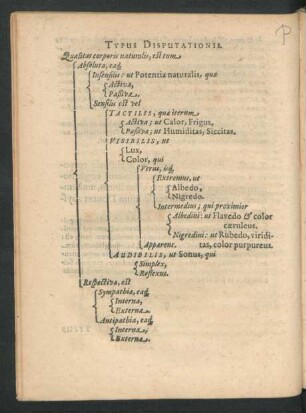 TYPUS DISPUTATIONIS.
Qualitas corporis naturalis, est tum
Absoluta, eaq́
Insensilis: ut Potentia naturalis, quæ
Activa,
Passiva.
Sensilis est vel
TACTILIS, quæ iterum
Activa; ut Calor, Frigus,
Passiva; ut Humiditas, Siccitas.
VISIBILIS, ut
Lux,
Color, qui
Verus, isq́
Extremus, ut
Albedo,
Nigredo.
Intermedius; qui proximior
Albedini: ut Flavedo & color
cæruleus.
Nigredini: ut Rubedo, viridi-
Apparens. tas, color purpureus.
AUDIBILIS, ut Sonus, qui
Simplex,
Reflexus.
Respectiva, est
Sympathia, eaq́
Interna,
Externa.
Antipathia, eaq́
Interna,
Externa.